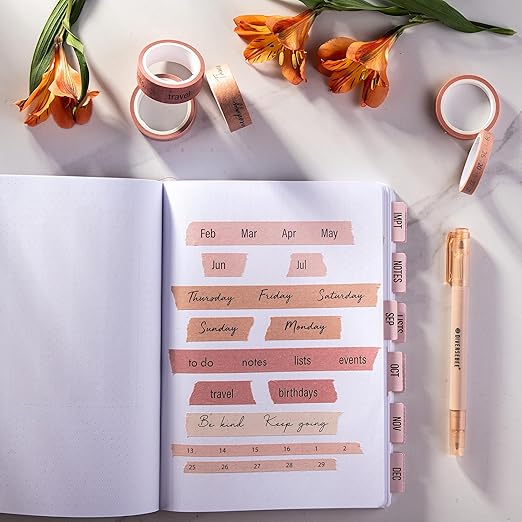 travel
Feb Mar Apr May
Jun Jul
Thursday Friday Saturday
Sunday Monday
to do notes lists events
travel birthdays
Be kind Keep going
13 14 15 16 1 2
25 26 27 28 29
IMPT
NOTES
LISTS
SEP
OCT
NOV
DEC
DIVERSEBEE